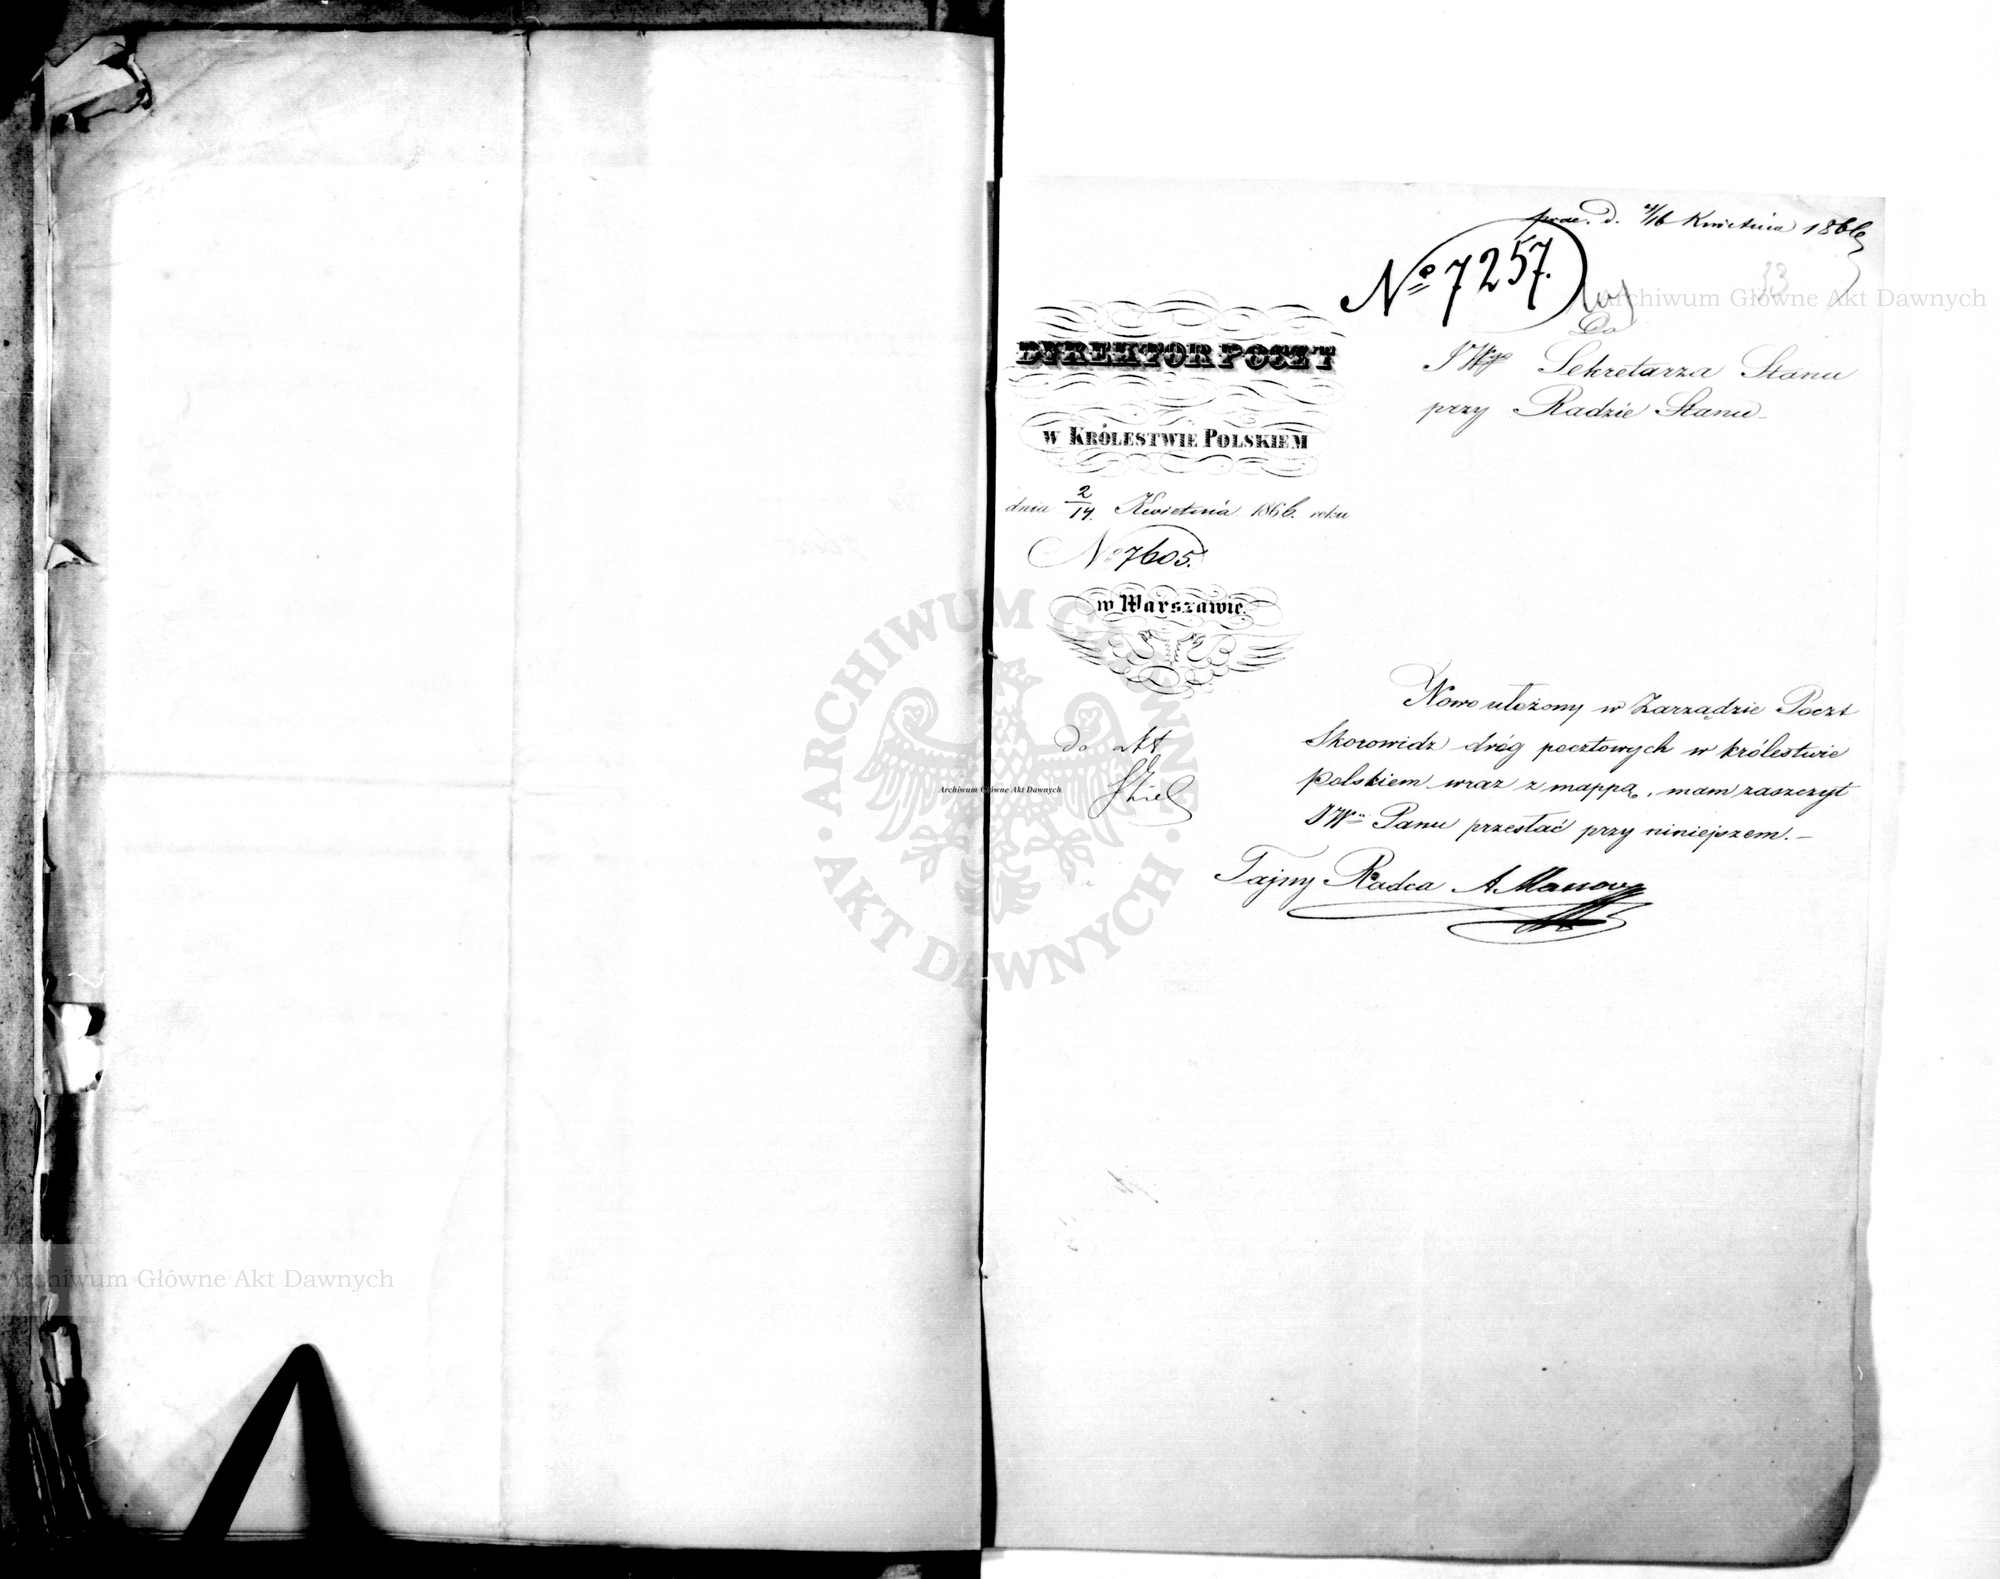 prae. d. 4/16 Kwietnia 1866
33
No 7257.
Do
JWgo Sekretarza Stanu
przy Radzie Stanu
DYREKTOR POCZT
W KRÓLESTWIE POLSKIEM
dnia 2/14. Kwietnia 1866. roku
No 7605.
w Warszawie.
Nowo ułożony w Zarządzie Poczt
Skorowidz dróg pocztowych w królestwie
polskiem wraz z mappą, mam zaszczyt
JWu Panu przesłać przy niniejszem.—
do akt
Tajny Radca A.
Archiwum Główne Akt Dawnych
ARCHIWUM GŁÓWNE · AKT DAWNYCH ·
Archiwum Główne Akt Dawnych
Archiwum Główne Akt Dawnych